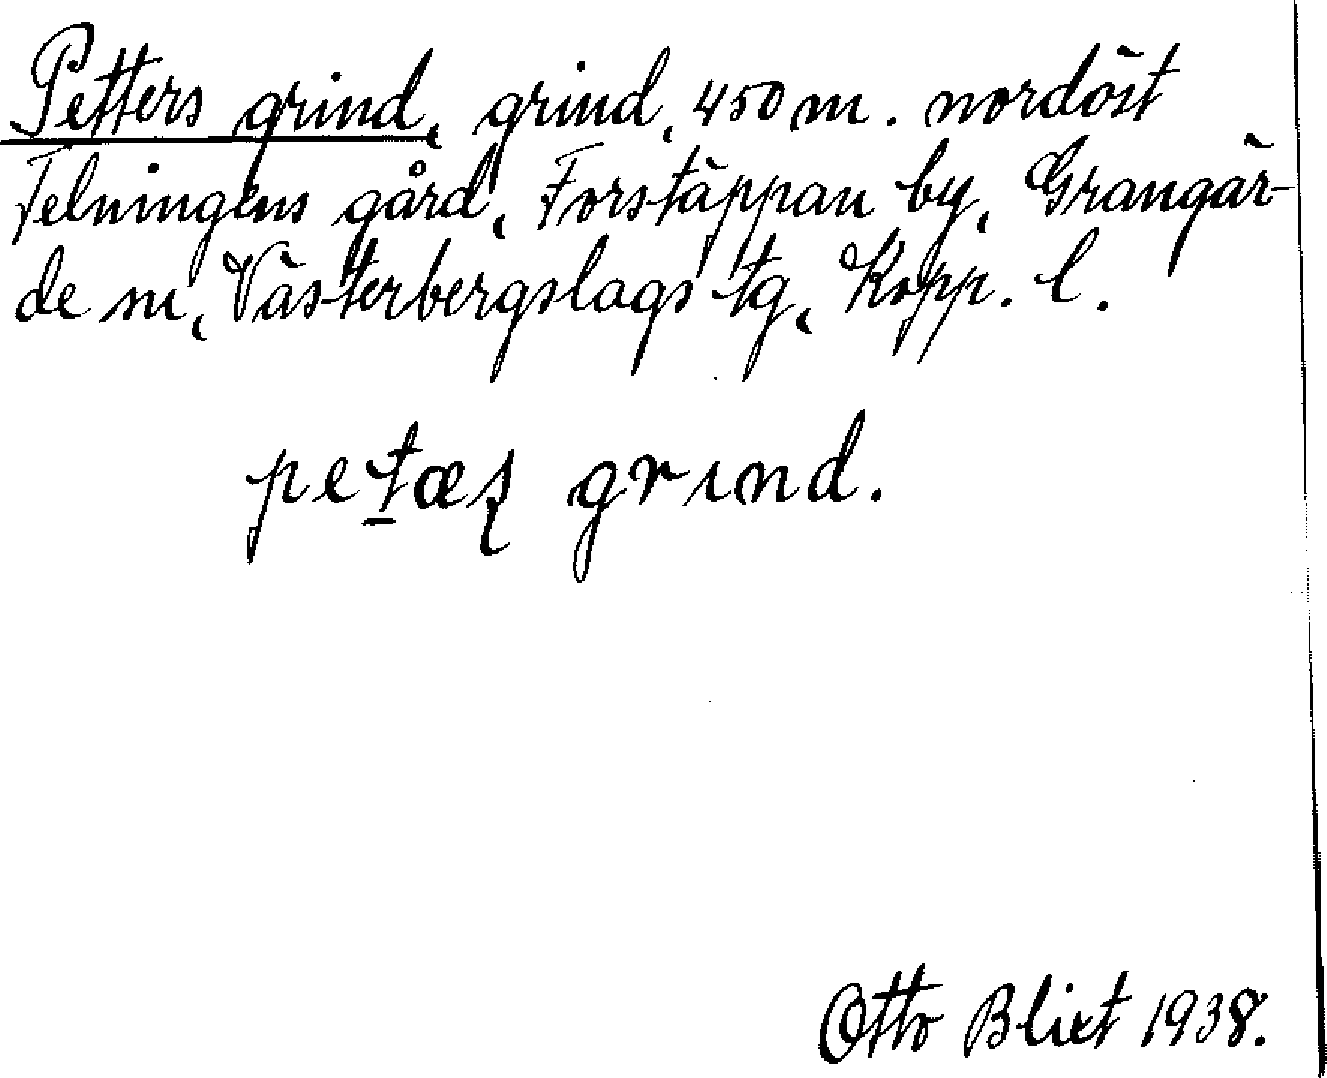 Petters grind, grind, 450 m. nordöst
Telningens gård, Forstäppan by, Grangär-
de sn, Västerbergslags tg, Kopp. l.
pet̲æʂ grınd.
Otto Blixt 1938.